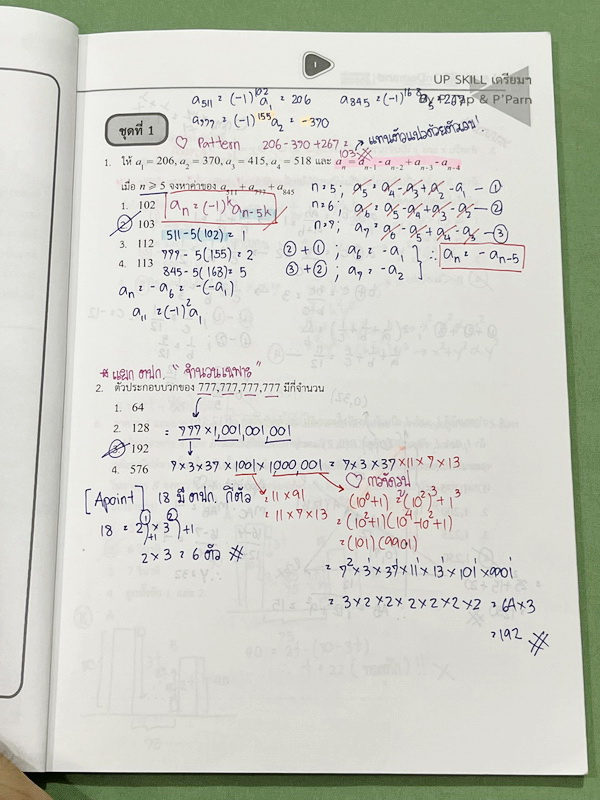 1
UP SKILL เตรียมฯ
By P'Pap & P'Parn
a₅₁₁ = (-1)¹⁰²a₁ = 206 a₈₄₅ = (-1)¹⁶⁸a₅ = 267
a₇₇₇ = (-1)¹⁵⁵a₂ = -370
ชุดที่ 1
♡ Pattern 206 - 370 + 267 = 103 #
แทนตัวแปรด้วยตัวเลข!
1. ให้ a₁ = 206, a₂ = 370, a₃ = 415, a₄ = 518 และ aₙ = aₙ₋₁ - aₙ₋₂ + aₙ₋₃ - aₙ₋₄
เมื่อ n ≥ 5 จงหาค่าของ a₅₁₁ + a₇₇₇ + a₈₄₅
1. 102
2. 103
3. 112
4. 113
aₙ = (-1)ᵏaₙ₋₅ₖ
511 - 5(102) = 1
777 - 5(155) = 2
845 - 5(168) = 5
aₙ = -a₆ = -(-a₁)
a₁₁ = (-1)²a₁
n = 5; a₅ = a₄ - a₃ + a₂ - a₁ - ①
n = 6; a₆ = a₅ - a₄ + a₃ - a₂ - ②
n = 7; a₇ = a₆ - a₅ + a₄ - a₃ - ③
② + ① ; a₆ = -a₁
③ + ② ; a₇ = -a₂
∴ aₙ = -aₙ₋₅
* แยก ตปก. " จำนวนเฉพาะ "
2. ตัวประกอบบวกของ 777,777,777,777 มีกี่จำนวน
1. 64
2. 128
3. 192
4. 576
= 777 × 1,001,001,001
7 × 3 × 37 × 1001 × 1,000,001 = 7 × 3 × 37 × 11 × 7 × 13
= 11 × 91
= 11 × 7 × 13
♡ การจัดรูป
(10⁶+1) = (10²)³ + 1³
= (10²+1)(10⁴-10²+1)
= (101)(9901)
= 7² × 3¹ × 37¹ × 11¹ × 13¹ × 101¹ × 9901¹
= 3 × 2 × 2 × 2 × 2 × 2 × 2 = 64 × 3
= 192 #
[Apoint] 18 มี ตปก. กี่ตัว
18 = 2¹ × 3²
+1 +1
2 × 3 = 6 ตัว #